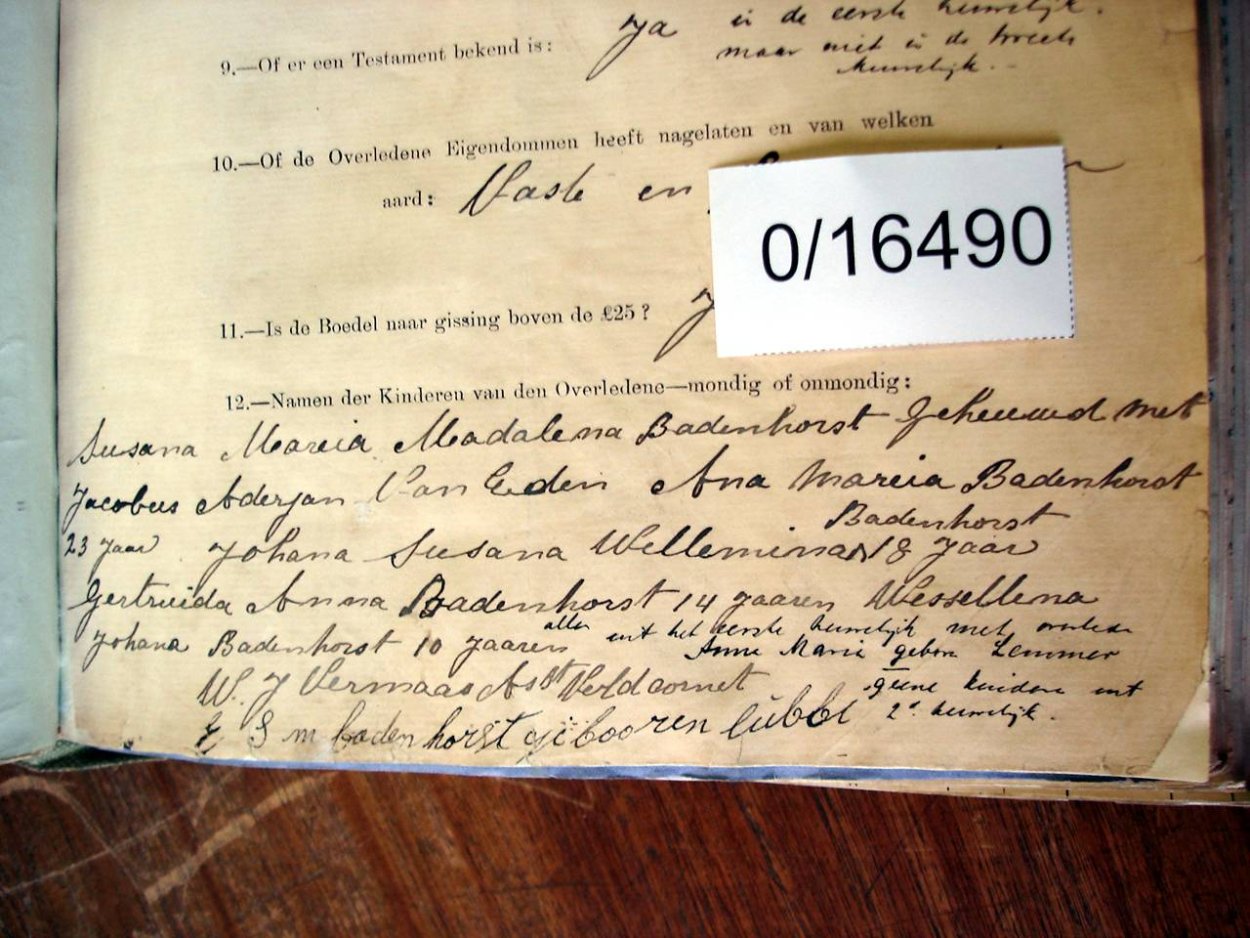 Ja in de eerste huwelijk.
9.—Of er een Testament bekend is:
maar niet in de tweede
huwelijk.—
10.—Of de Overledene Eigendommen heeft nagelaten en van welken
aard: Vaste en
0/16490
11.—Is de Boedel naar gissing boven de £25?
12.—Namen der Kinderen van den Overledene—mondig of onmondig:
Susana Mareia Madalena Badenhorst Geheuwd met
Jacobus Aderjan Van Eeden Ana Mareia Badenhorst
Badenhorst
23 Jaar Johana Susana Wellemina 18 Jaar
Gertruida Anna Badenhorst 14 Jaaren Wessellena
allen uit het eerste huwelijk met
Johana Badenhorst 10 Jaaren Anna Maria gebore Lemmer
W. J Vermaas Asst Veldcornet geene kinderen uit
2e huwelijk.
S m badenhorst gebooren lubbe